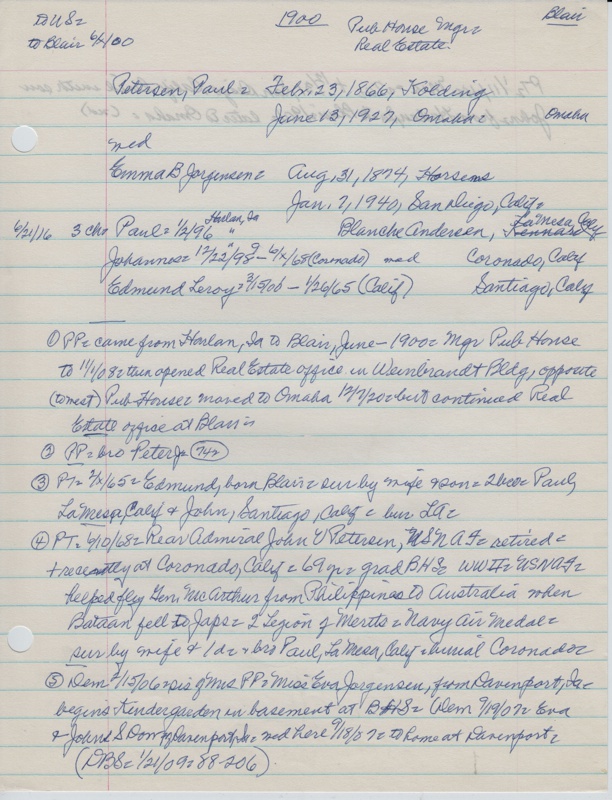 to US=
to Blair 6/x/00
1900
Pub House Mgr=
Real Estate.
Blair
Petersen, Paul= Feb. 23, 1866, Kolding
June 13, 1927, Omaha= Omaha
med
Emma B Jorgensen= Aug. 31, 1874, Horsens
Jan. 7, 1940, San Diego, Calif=
6/21/16 3 ch= Paul= 1/2/96 Harlan, Ia Blanche Andersen, Kennard La Mesa, Calif
Johannes= 12/22/98 " - 6/x/68 (Coronado) med Coronado, Calif
Edmund Leroy= 3/15/00 - 1/26/65 (Calif) Santiago, Calif
① PP= came from Harlan, Ia to Blair, June - 1900= Mgr Pub House
to 11/1/08= then opened Real Estate office in Weinbrandt Bldg, opposite
(to west) Pub House= moved to Omaha 12/7/20= but continued Real
Estate office at Blair=
② PP= bro Peter Jr 742
③ PT= 2/x/65= Edmund, born Blair= sur by wife & son= 2 bro= Paul,
La Mesa, Calif & John, Santiago, Calif= bur LA=
④ PT= 6/10/68= Rear Admiral John V Petersen, USNAF= retired=
+ recently at Coronado, Calif= 69 yr= grad BHS= WWII= USNAF=
helped fly Gen. McArthur from Philippines to Australia when
Bataan fell to Japs= 2 Legion of Merits= Navy Air Medal=
sur by wife & 1 da= & bro Paul, La Mesa, Calif= burial Coronado=
⑤ Dem 2/15/06= sis of Mrs PP= Miss Eva Jorgensen, from Davenport, Ia=
begins Kindergarden in basement at BHS= (Dem 9/19/07= Eva
& John S Dom of Davenport, Ia= med here 9/18/07= to home at Davenport=
(DBS= 1/21/09= 88-206)